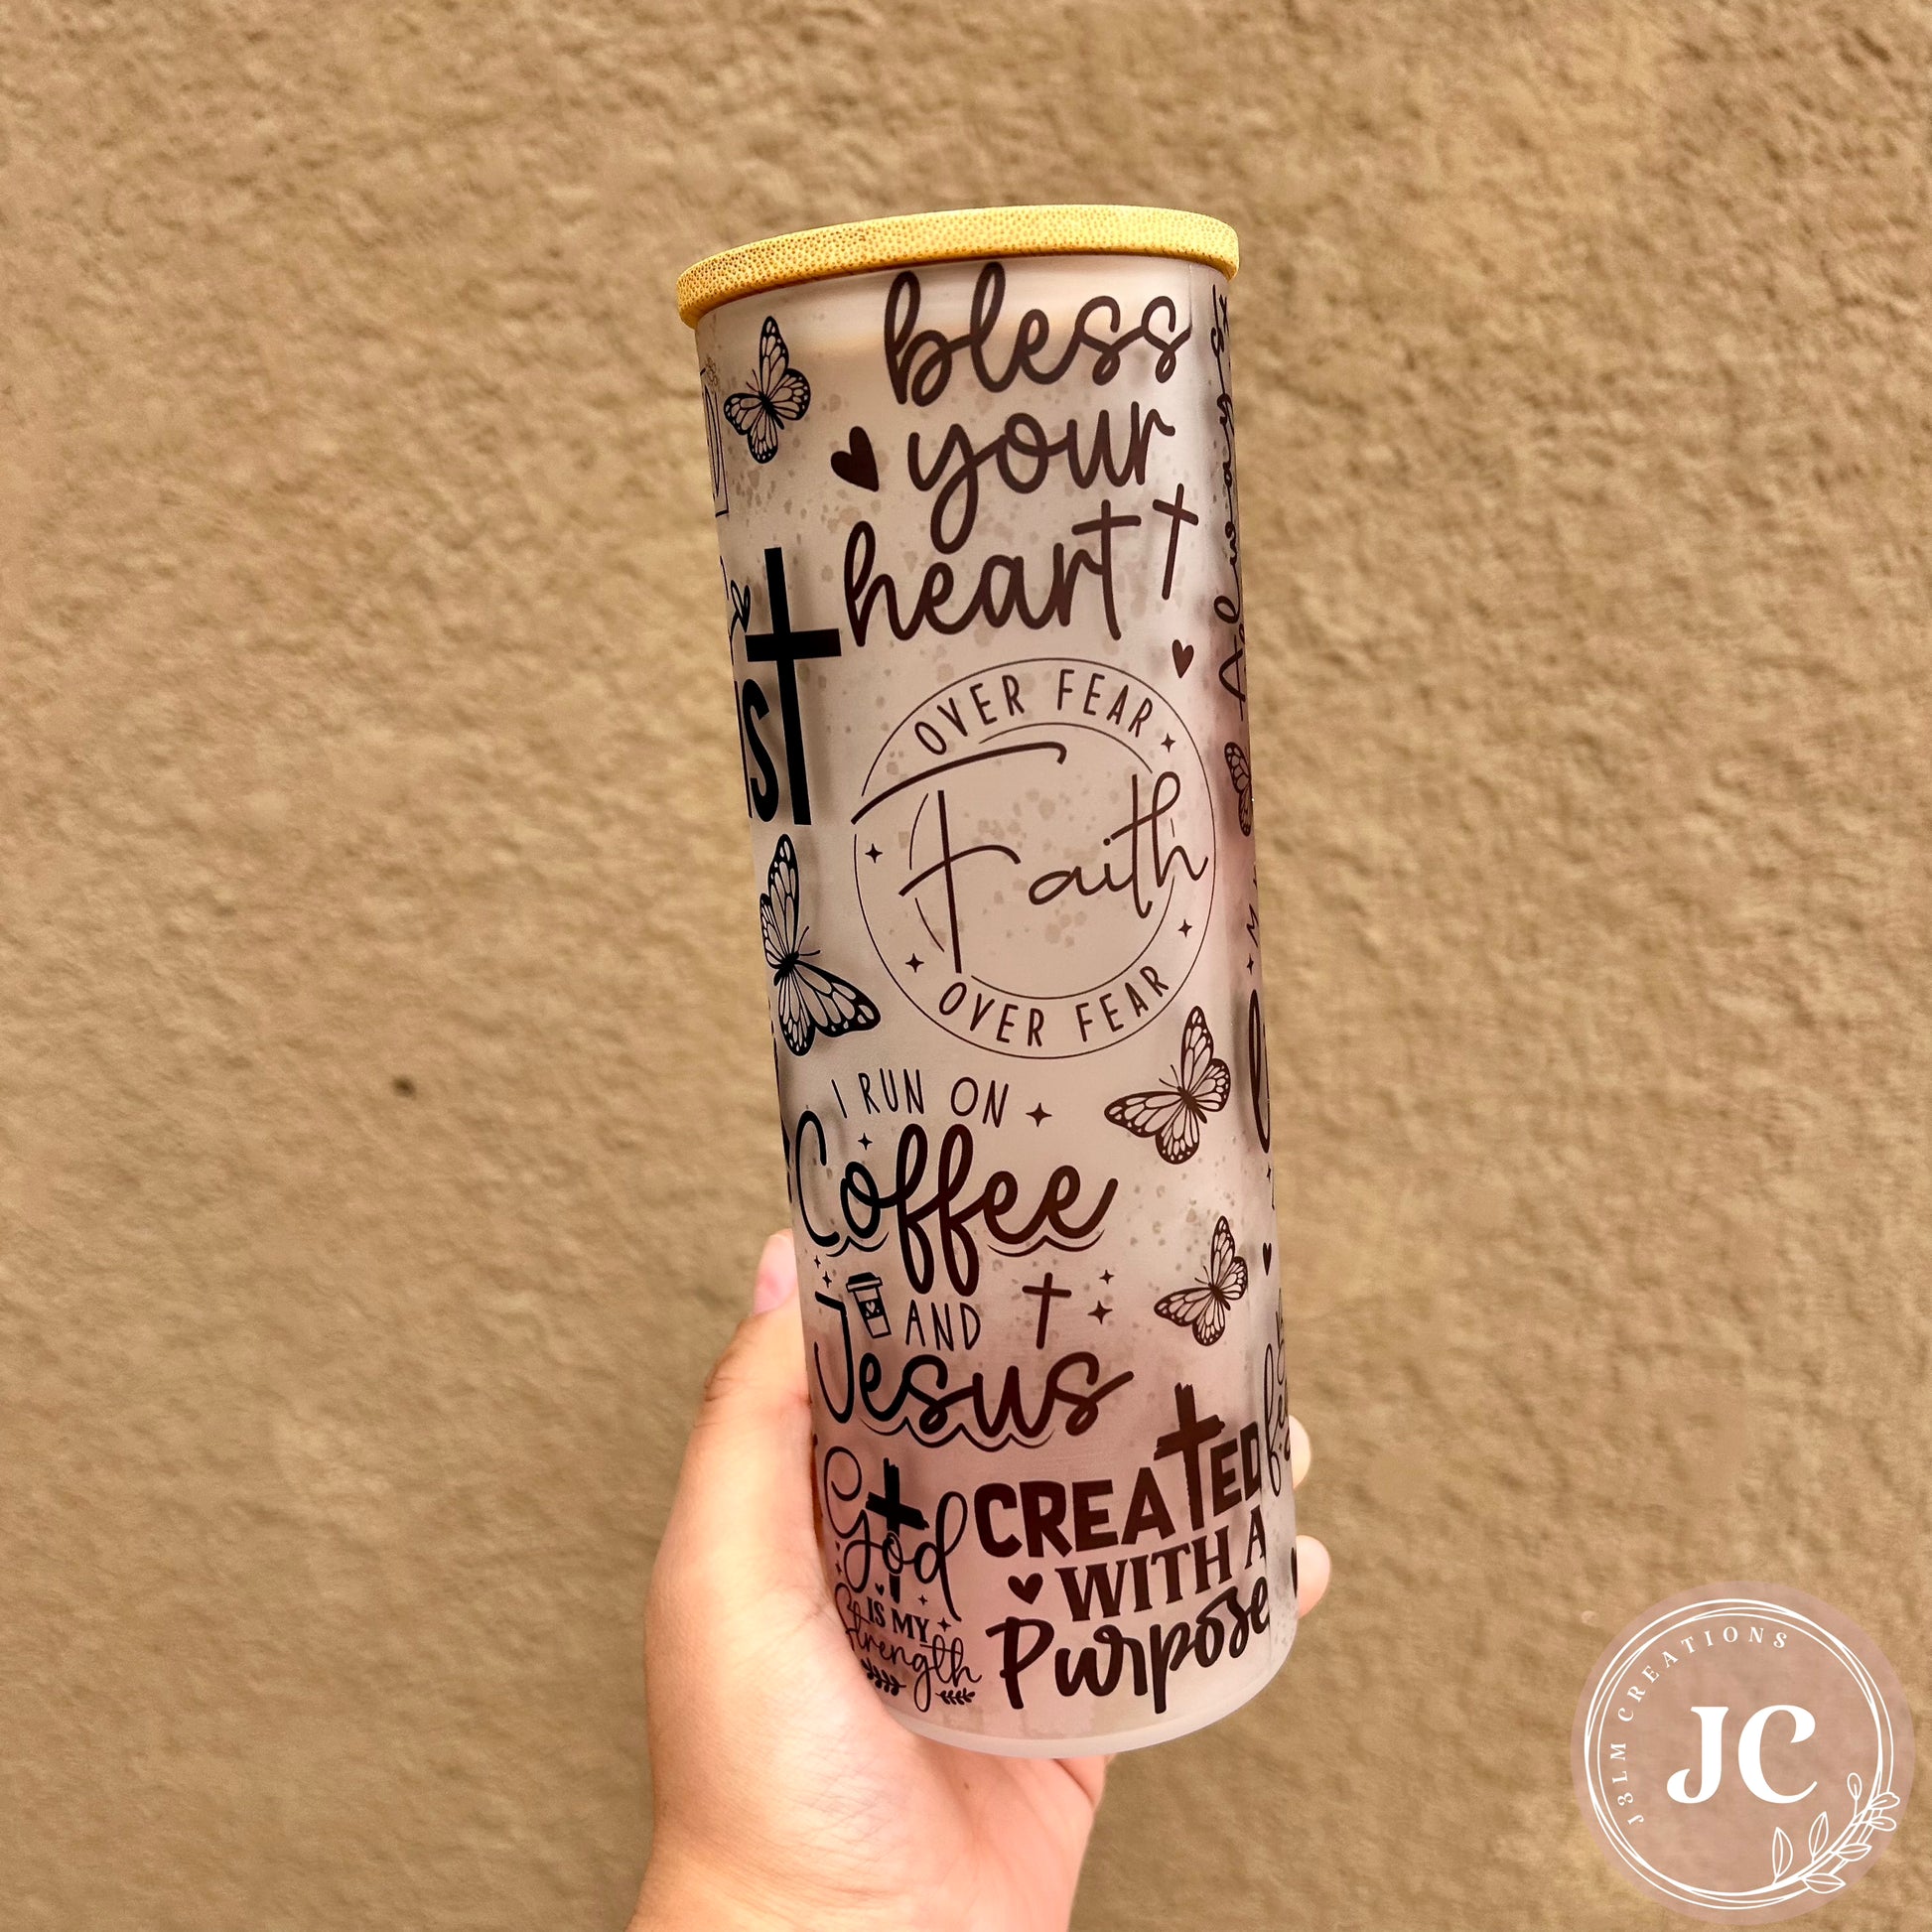 bless
your
heart
OVER FEAR
Faith
OVER FEAR
I RUN ON
Coffee
AND
Jesus
God
IS MY
Strength
CREATED
WITH A
Purpose
J3LM CREATIONS
JC